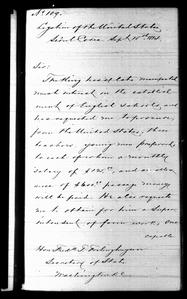 No. 109.
Legation of the United States
Seoul, Corea, Sept. 10th 1884.
Sir:
The King has of late manifested
much interest in the establish-
ment of English schools, and
has requested me to procure,
from the United States, three
teachers young men prepared
to each of whom a monthly
salary of $125.00 and an allow-
ance of $600.00 passage money
will be paid. He also requests
me to obtain for him a Super-
intendent of farm work, one
capable
Hon. Fred'k T. Frelinghuysen
Secretary of State
Washington D.C.